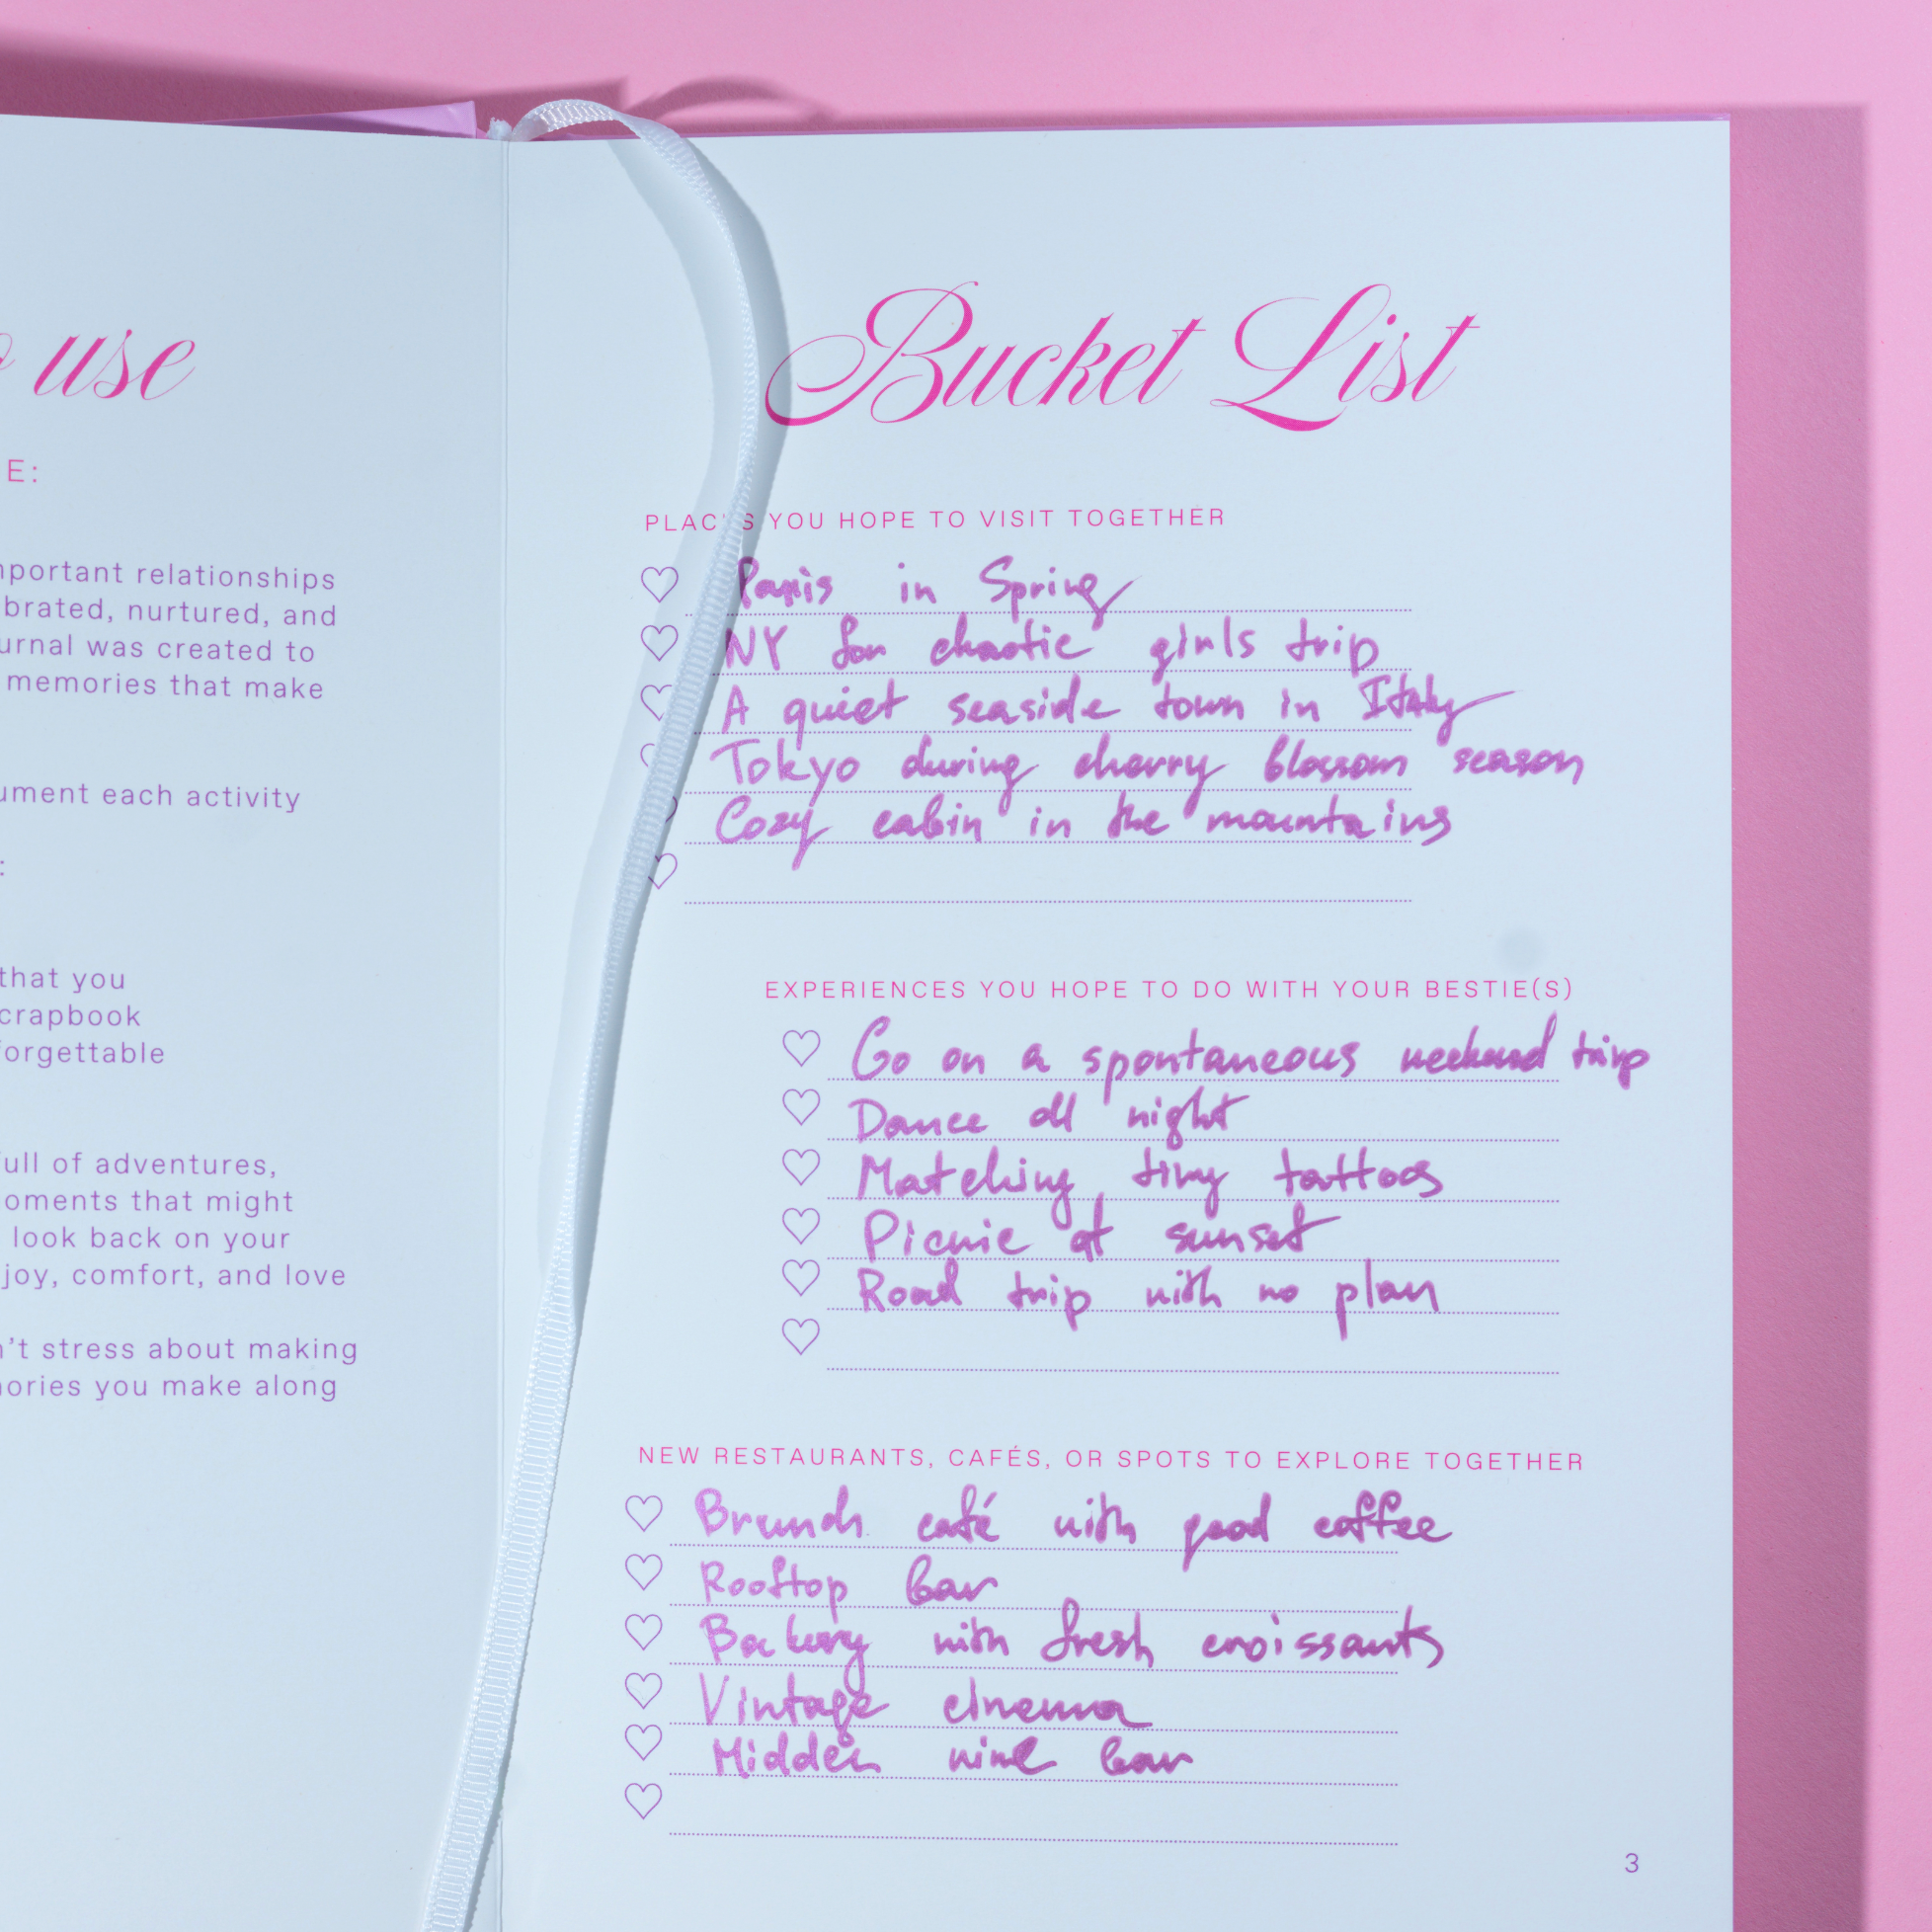 use
E:
mportant relationships
brated, nurtured, and
urnal was created to
memories that make
ument each activity
:
that you
crapbook
forgettable
full of adventures,
oments that might
look back on your
joy, comfort, and love
n't stress about making
mories you make along
Bucket List
PLACES YOU HOPE TO VISIT TOGETHER
Paris in Spring
NY for chaotic girls trip
A quiet seaside town in Italy
Tokyo during cherry blossom season
Cozy cabin in the mountains
EXPERIENCES YOU HOPE TO DO WITH YOUR BESTIE(S)
Go on a spontaneous weekend trip
Dance all night
Matching tiny tattoos
Picnic at sunset
Road trip with no plan
NEW RESTAURANTS, CAFÉS, OR SPOTS TO EXPLORE TOGETHER
Brunch café with good coffee
Rooftop bar
Bakery with fresh croissants
Vintage cinema
Hidden wine bar
3